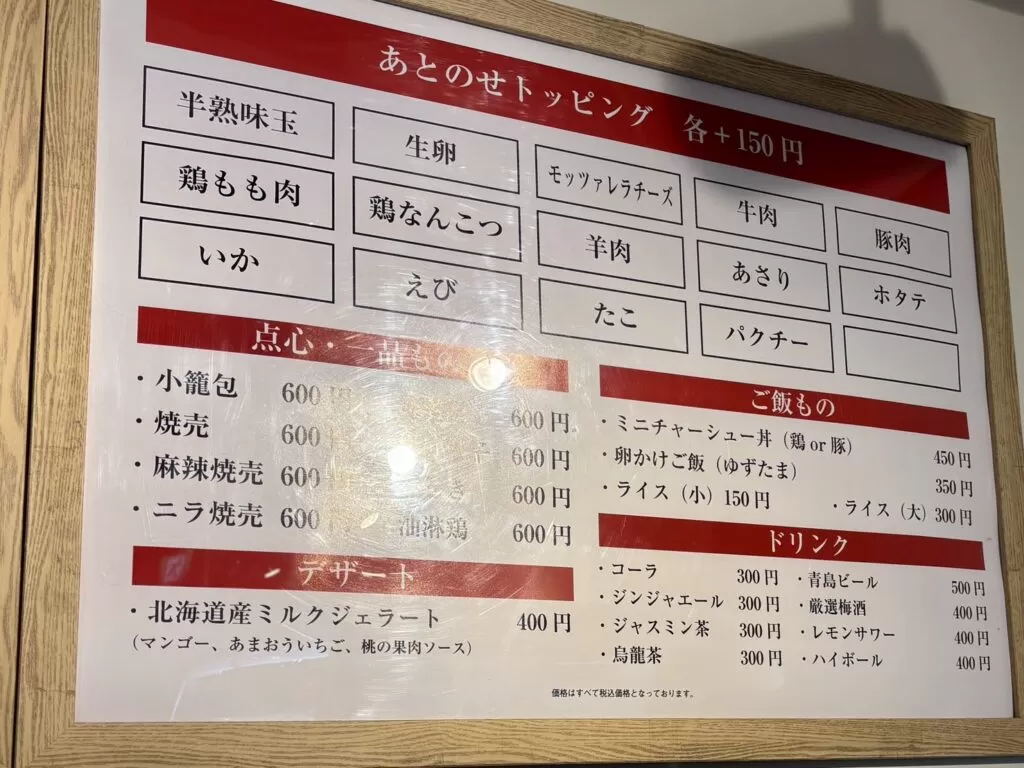 あとのせトッピング 各+150円
半熟味玉 生卵 モッツァレラチーズ 牛肉 豚肉
鶏もも肉 鶏なんこつ 羊肉 あさり ホタテ
いか えび たこ パクチー
点心・ 詰もの
・小籠包 600円
・焼売 600円
・麻辣焼売 600
・ニラ焼売 600
600円
600円
600円
油淋鶏 600円
デザート
・北海道産ミルクジェラート 400円
(マンゴー、あまおういちご、桃の果肉ソース)
ご飯もの
・ミニチャーシュー丼(鶏or豚) 450円
・卵かけご飯(ゆずたま) 350円
・ライス(小)150円 ・ライス(大)300円
ドリンク
・コーラ 300円 ・青島ビール 500円
・ジンジャエール 300円 ・厳選梅酒 400円
・ジャスミン茶 300円 ・レモンサワー 400円
・烏龍茶 300円 ・ハイボール 400円
価格はすべて税込価格となっております。